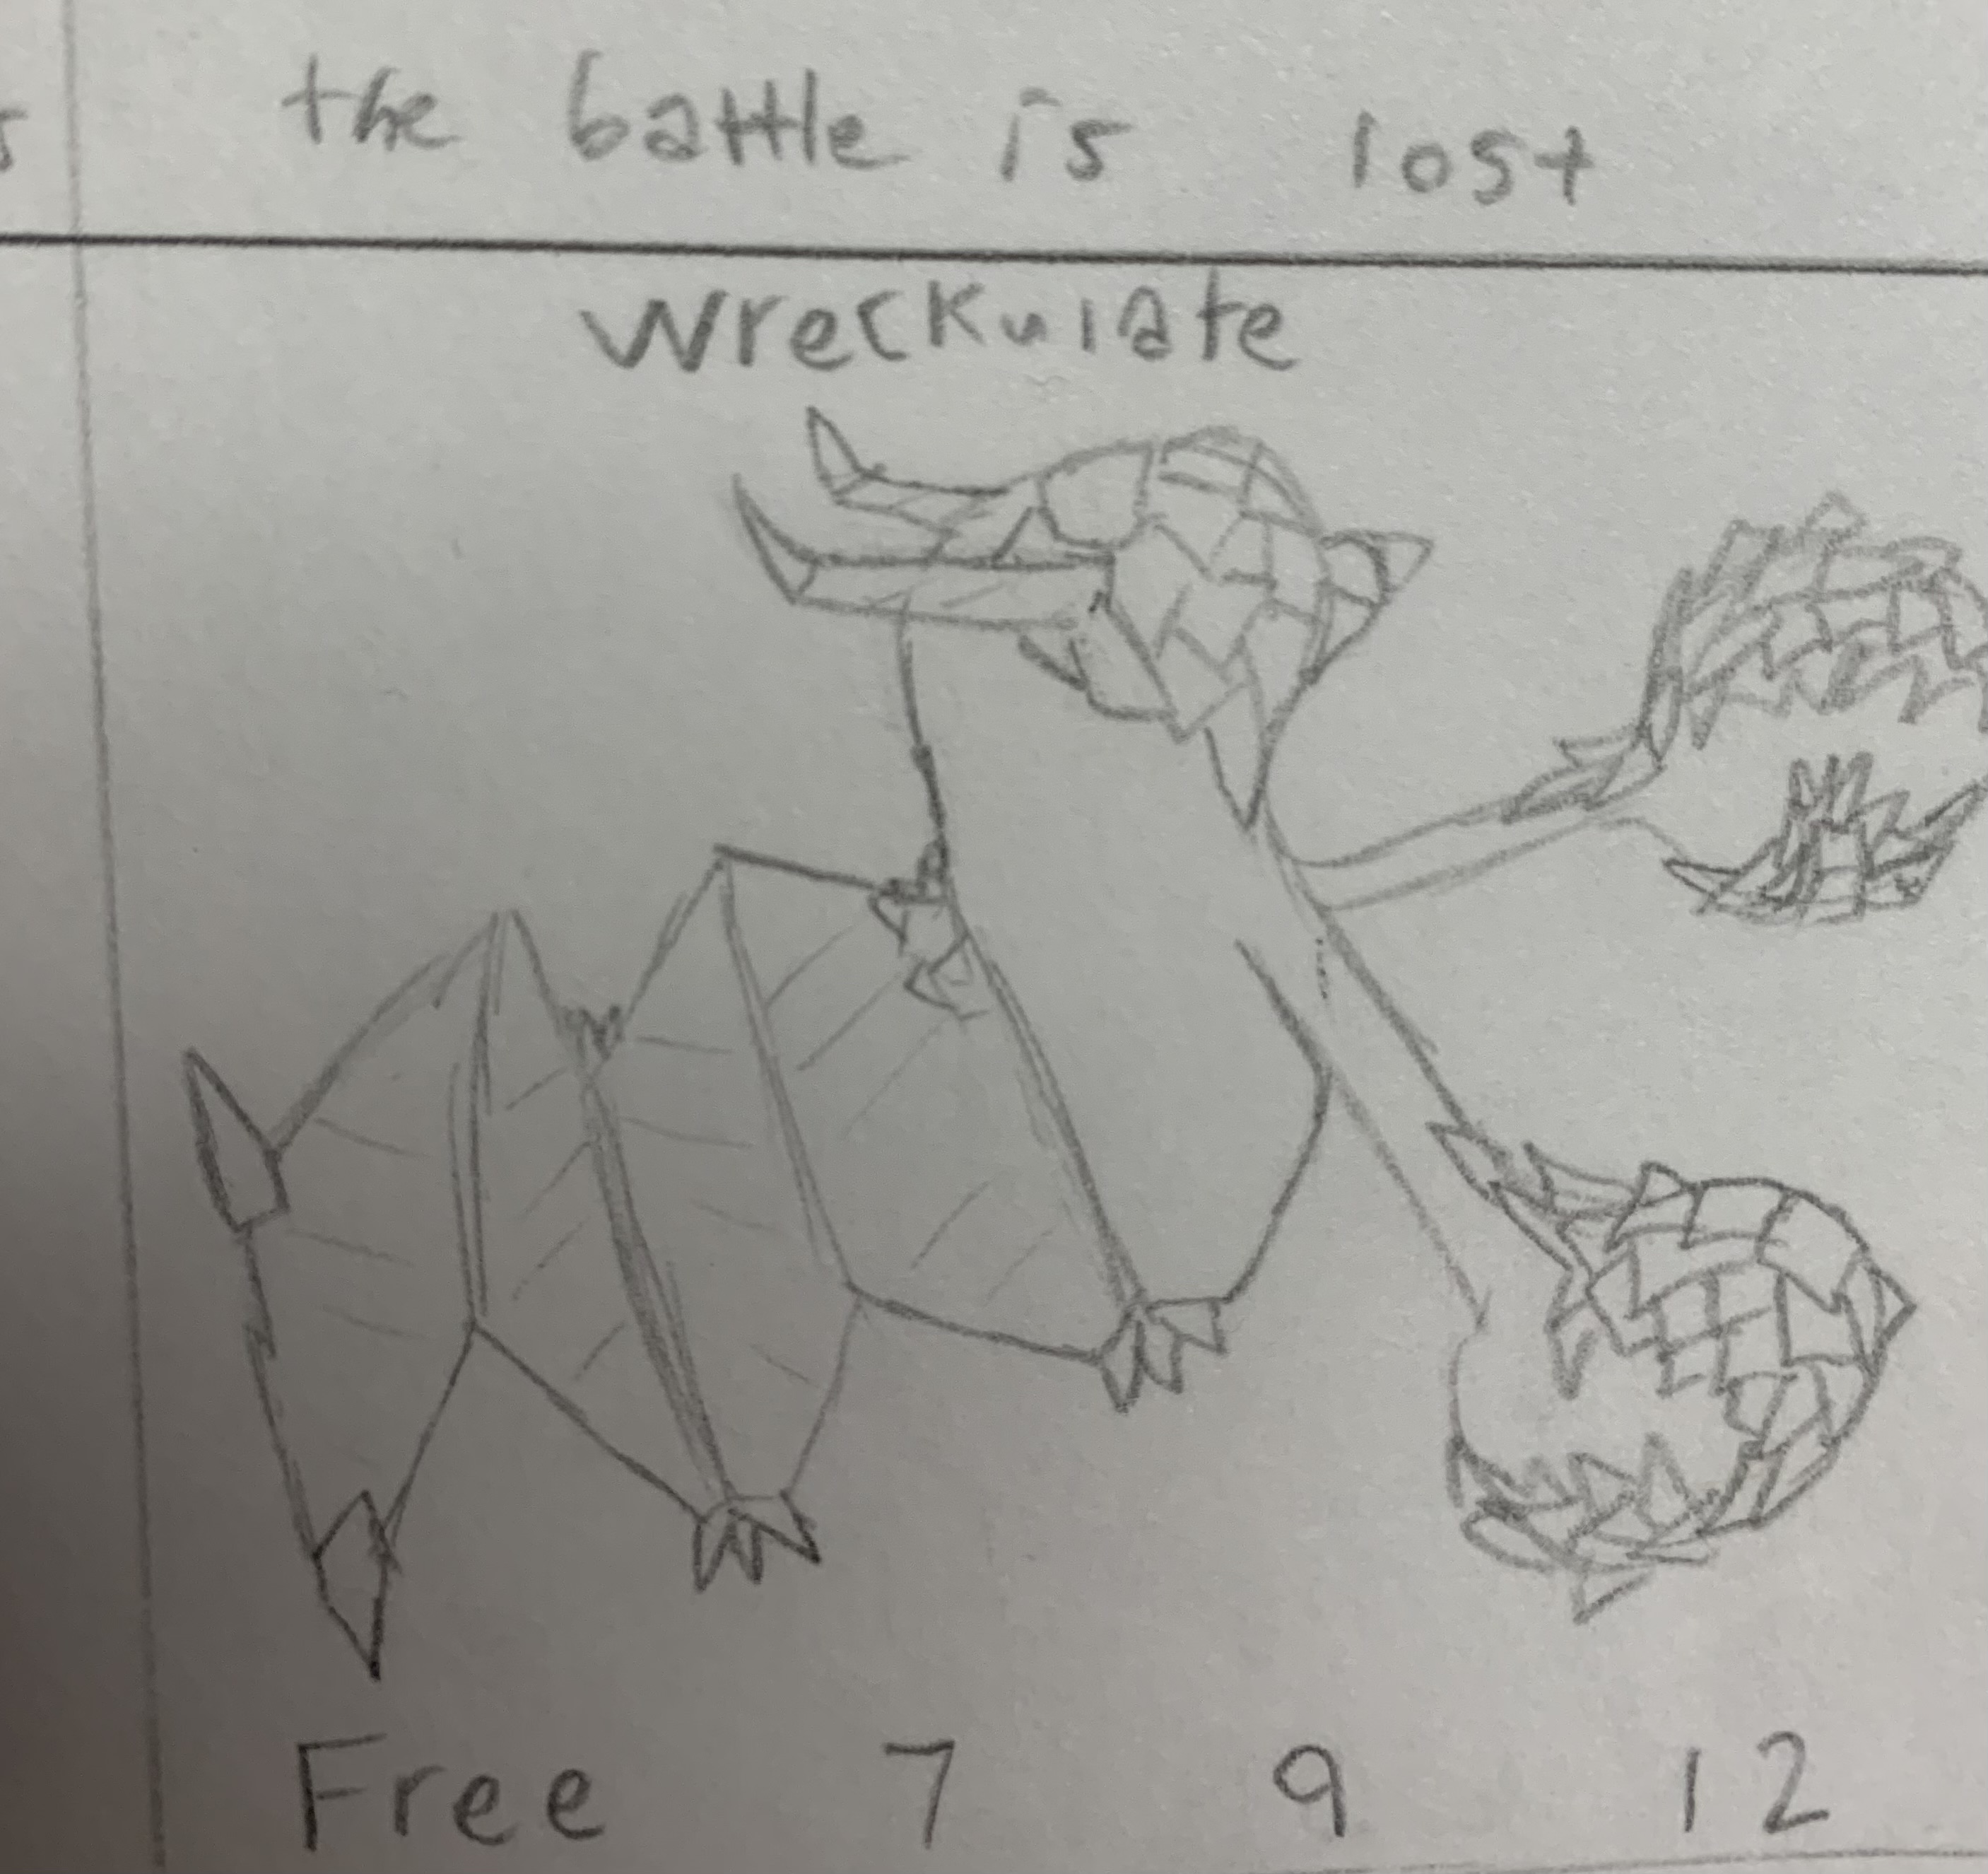 the battle is lost
Wreckulate
Free 7 9 12